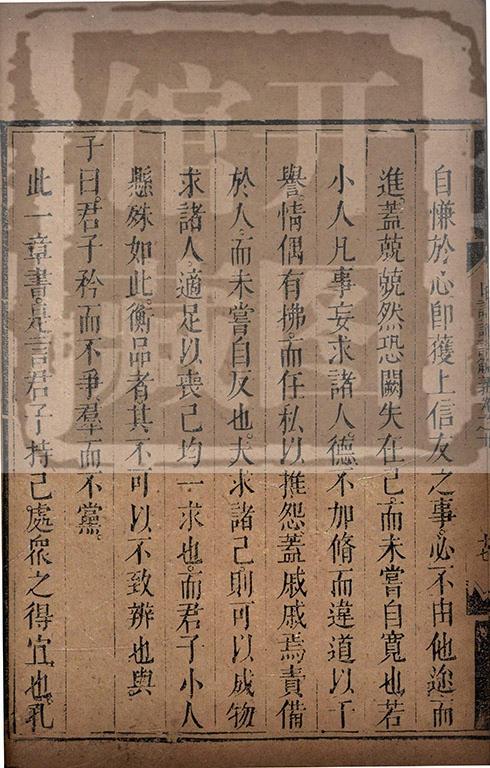 自慊於心卽獲上信友之事必不由他途而
進蓋兢兢然恐闕失在己而未嘗自寬也若
小人凡事妄求諸人德不加脩而違道以干
譽情偶有拂而任私以推怨蓋戚戚焉責備
於人而未嘗自反也夫求諸己則可以成物
求諸人適足以喪己均一求也而君子小人
懸殊如此衡品者其不可以不致辨也與
子曰君子矜而不爭羣而不黨
此一章書是言君子持己處衆之得宜也孔